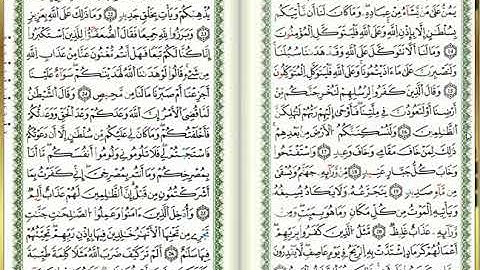 يَمُنُّ عَلَىٰ مَن يَشَآءُ مِنْ عِبَادِهِۦ وَمَا كَانَ لَنَآ أَن نَّأْتِيَكُم
بِسُلْطَٰنٍ إِلَّا بِإِذْنِ ٱللَّهِ وَعَلَى ٱللَّهِ فَلْيَتَوَكَّلِ ٱلْمُؤْمِنُونَ
١١ وَمَا لَنَآ أَلَّا نَتَوَكَّلَ عَلَى ٱللَّهِ وَقَدْ هَدَىٰنَا سُبُلَنَا
وَلَنَصْبِرَنَّ عَلَىٰ مَآ ءَاذَيْتُمُونَا وَعَلَى ٱللَّهِ فَلْيَتَوَكَّلِ ٱلْمُتَوَكِّلُونَ
١٢ وَقَالَ ٱلَّذِينَ كَفَرُوا۟ لِرُسُلِهِمْ لَنُخْرِجَنَّكُم مِّنْ
أَرْضِنَآ أَوْ لَتَعُودُنَّ فِى مِلَّتِنَا فَأَوْحَىٰٓ إِلَيْهِمْ رَبُّهُمْ لَنُهْلِكَنَّ
ٱلظَّٰلِمِينَ ١٣ وَلَنُسْكِنَنَّكُمُ ٱلْأَرْضَ مِنۢ بَعْدِهِمْ
ذَٰلِكَ لِمَنْ خَافَ مَقَامِى وَخَافَ وَعِيدِ ١٤ وَٱسْتَفْتَحُوا۟
وَخَابَ كُلُّ جَبَّارٍ عَنِيدٍ ١٥ مِّن وَرَآئِهِۦ جَهَنَّمُ وَيُسْقَىٰ
مِن مَّآءٍ صَدِيدٍ ١٦ يَتَجَرَّعُهُۥ وَلَا يَكَادُ يُسِيغُهُۥ
وَيَأْتِيهِ ٱلْمَوْتُ مِن كُلِّ مَكَانٍ وَمَا هُوَ بِمَيِّتٍ وَمِن
وَرَآئِهِۦ عَذَابٌ غَلِيظٌ ١٧ مَّثَلُ ٱلَّذِينَ كَفَرُوا۟ بِرَبِّهِمْ
أَعْمَٰلُهُمْ كَرَمَادٍ ٱشْتَدَّتْ بِهِ ٱلرِّيحُ فِى يَوْمٍ عَاصِفٍ لَّا يَقْدِرُونَ
يُذْهِبْكُمْ وَيَأْتِ بِخَلْقٍ جَدِيدٍ ١٩ وَمَا ذَٰلِكَ عَلَى ٱللَّهِ بِعَزِيزٍ
٢٠ وَبَرَزُوا۟ لِلَّهِ جَمِيعًا فَقَالَ ٱلضُّعَفَٰٓؤُا۟ لِلَّذِينَ ٱسْتَكْبَرُوٓا۟
إِنَّا كُنَّا لَكُمْ تَبَعًا فَهَلْ أَنتُم مُّغْنُونَ عَنَّا مِنْ عَذَابِ ٱللَّهِ
مِن شَىْءٍ قَالُوا۟ لَوْ هَدَىٰنَا ٱللَّهُ لَهَدَيْنَٰكُمْ سَوَآءٌ عَلَيْنَآ
أَجَزِعْنَآ أَمْ صَبَرْنَا مَا لَنَا مِن مَّحِيصٍ ٢١ وَقَالَ ٱلشَّيْطَٰنُ
لَمَّا قُضِىَ ٱلْأَمْرُ إِنَّ ٱللَّهَ وَعَدَكُمْ وَعْدَ ٱلْحَقِّ وَوَعَدتُّكُمْ
فَأَخْلَفْتُكُمْ وَمَا كَانَ لِىَ عَلَيْكُم مِّن سُلْطَٰنٍ إِلَّآ أَن دَعَوْتُكُمْ
فَٱسْتَجَبْتُمْ لِى فَلَا تَلُومُونِى وَلُومُوٓا۟ أَنفُسَكُم مَّآ أَنَا۠
بِمُصْرِخِكُمْ وَمَآ أَنتُم بِمُصْرِخِىَّ إِنِّى كَفَرْتُ بِمَآ
أَشْرَكْتُمُونِ مِن قَبْلُ إِنَّ ٱلظَّٰلِمِينَ لَهُمْ عَذَابٌ أَلِيمٌ
٢٢ وَأُدْخِلَ ٱلَّذِينَ ءَامَنُوا۟ وَعَمِلُوا۟ ٱلصَّٰلِحَٰتِ جَنَّٰتٍ
تَجْرِى مِن تَحْتِهَا ٱلْأَنْهَٰرُ خَٰلِدِينَ فِيهَا بِإِذْنِ رَبِّهِمْ تَحِيَّتُهُمْ
فِيهَا سَلَٰمٌ ٢٣ أَلَمْ تَرَ كَيْفَ ضَرَبَ ٱللَّهُ مَثَلًا كَلِمَةً طَيِّبَةً